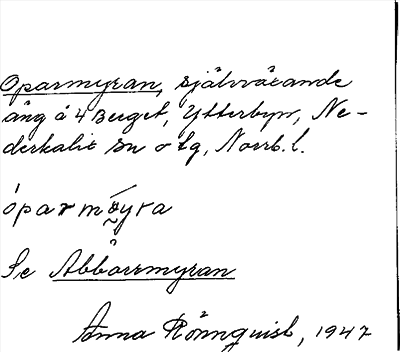 Oparmyran, självväxande
äng å 4 Berget, Ytterbyn, Ne-
derkalix sn o tg, Norrb. l.
óparmǿ̰yra
Se Åbborrmyran
Anna Rönnquist, 1947